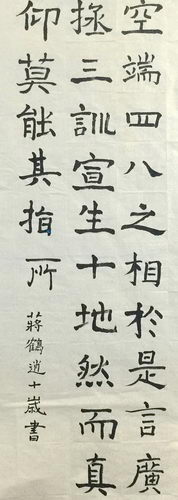 空端四八之相於是言廣
拯三訓宣生十地然而真
仰莫能其指所
蔣鶴逍十歲書